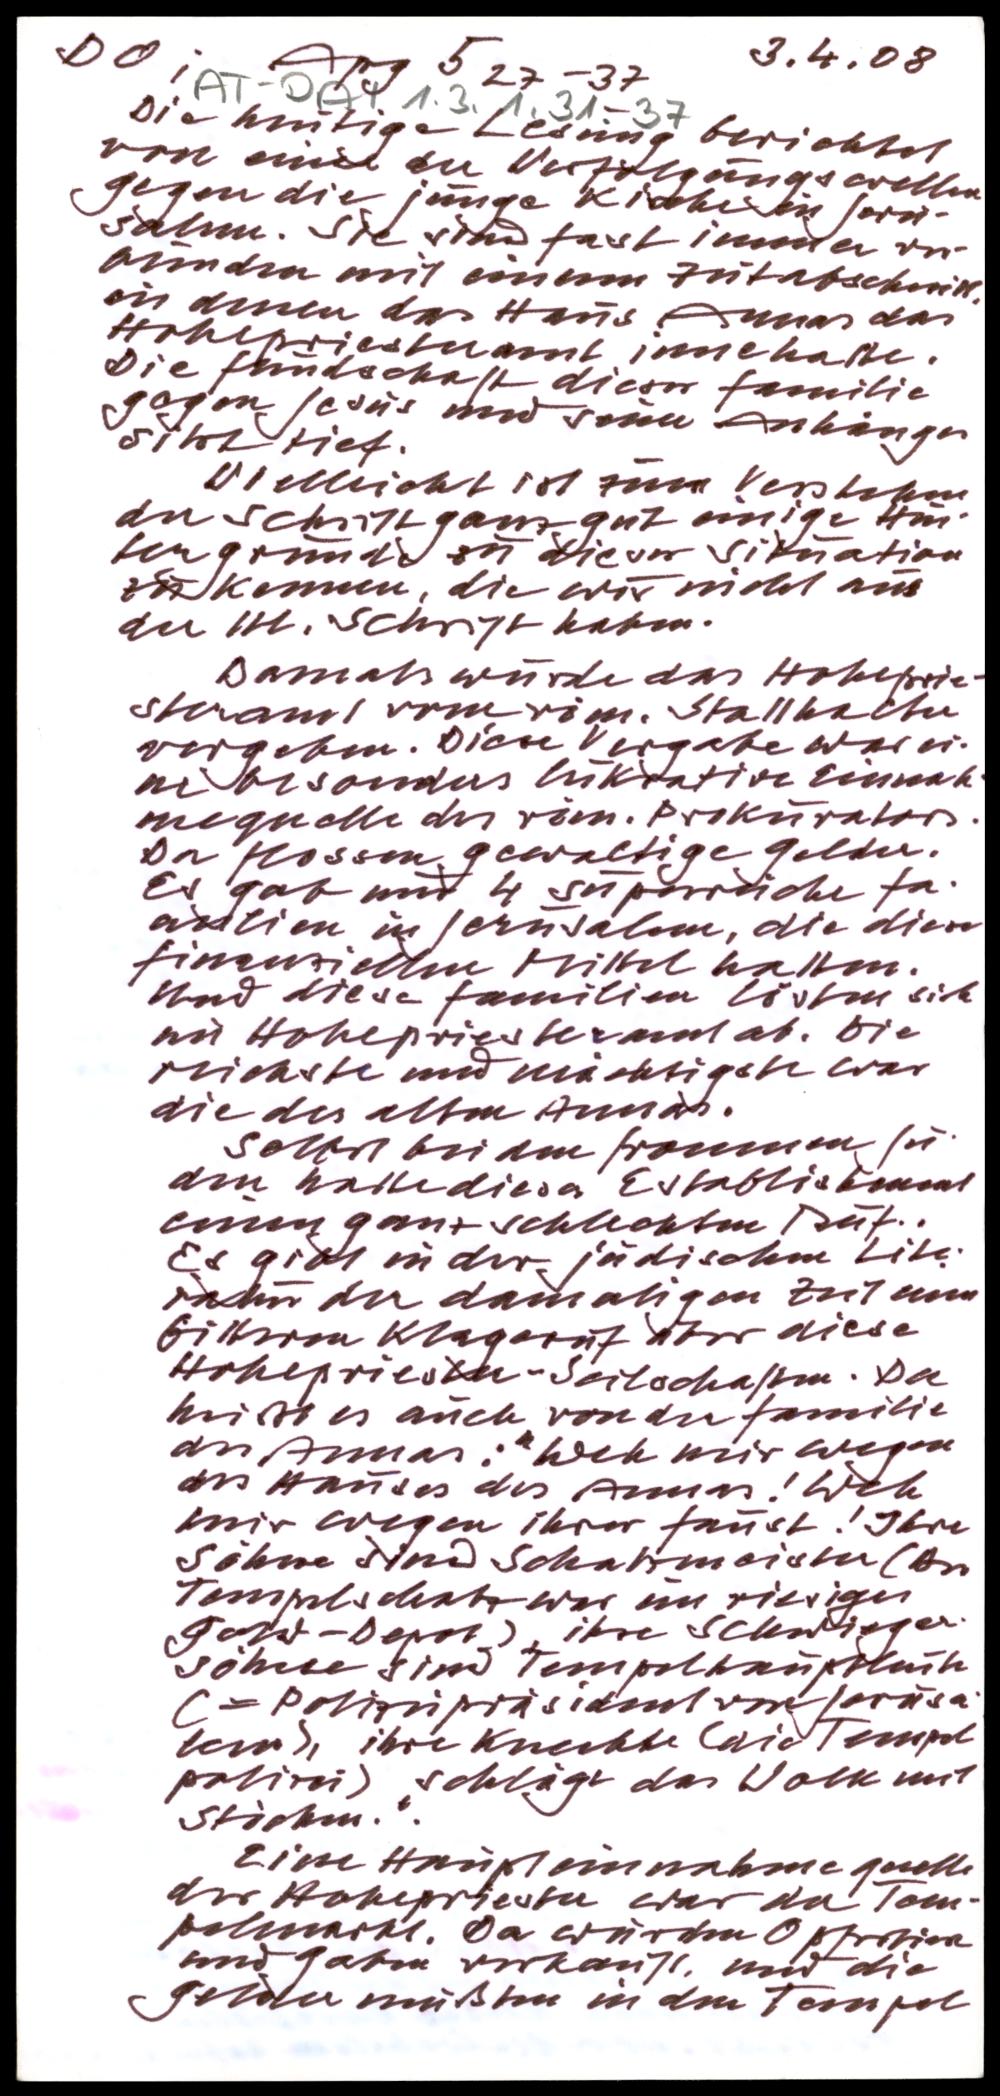 DO; Apg 5 27-37 3.4.08
AT-DAT 1.3.1.31-37
Die heutige Lesung berichtet
von einer der Verfolgungswellen
gegen die junge Kirche in Jeru-
salem. Sie sind fast immer ver-
bunden mit einem Zeitabschnitt,
in denen das Haus Annas das
Hohepriesteramt innehatte.
Die Feindschaft dieser Familie
gegen Jesus und seine Anhänger
sitzt tief.
Vielleicht ist zum Verstehen
der Schrift ganz gut einige Hin-
tergründe zu dieser Situation
zu kennen, die wir nicht aus
der Hl. Schrift haben.
Damals wurde das Hoheprie-
steramt vom röm. Statthalter
vergeben. Diese Vergabe war ei-
ne besonders lukrative Einnah-
mequelle des röm. Prokurators.
Da flossen gewaltige Gelder.
Es gab nur 4 superreiche Fa-
milien in Jerusalem, die diese
finanziellen Mittel hatten.
Und diese Familien lösten sich
im Hohepriesteramt ab. Die
reichste und mächtigste war
die des alten Annas.
Selbst bei den frommen Ju-
den hatte dieses Establishment
einen ganz schlechten Ruf..
Es gibt in der jüdischen Lite-
ratur der damaligen Zeit einen
bitteren Klageruf über diese
Hohepriester-Seilschaften. Da
heißt es auch von der Familie
des Annas: "Weh mir wegen
des Hauses des Annas! Weh
mir wegen ihrer Faust! Ihre
Söhne sind Schatzmeister (Der
Tempelschatz war ein riesiges
Gold-Depot), ihre Schwieger-
söhne sind Tempelhauptleute
(= Polizeipräsident von Jerusa-
lem), ihre Knechte (die Tempel
polizei) schlägt das Volk mit
Stöcken.".
Eine Haupteinnahmequelle
der Hohepriester war der Tem-
pelmarkt. Da wurden Opfertiere
und Gaben verkauft, und die
Gelder mußten in den Tempel